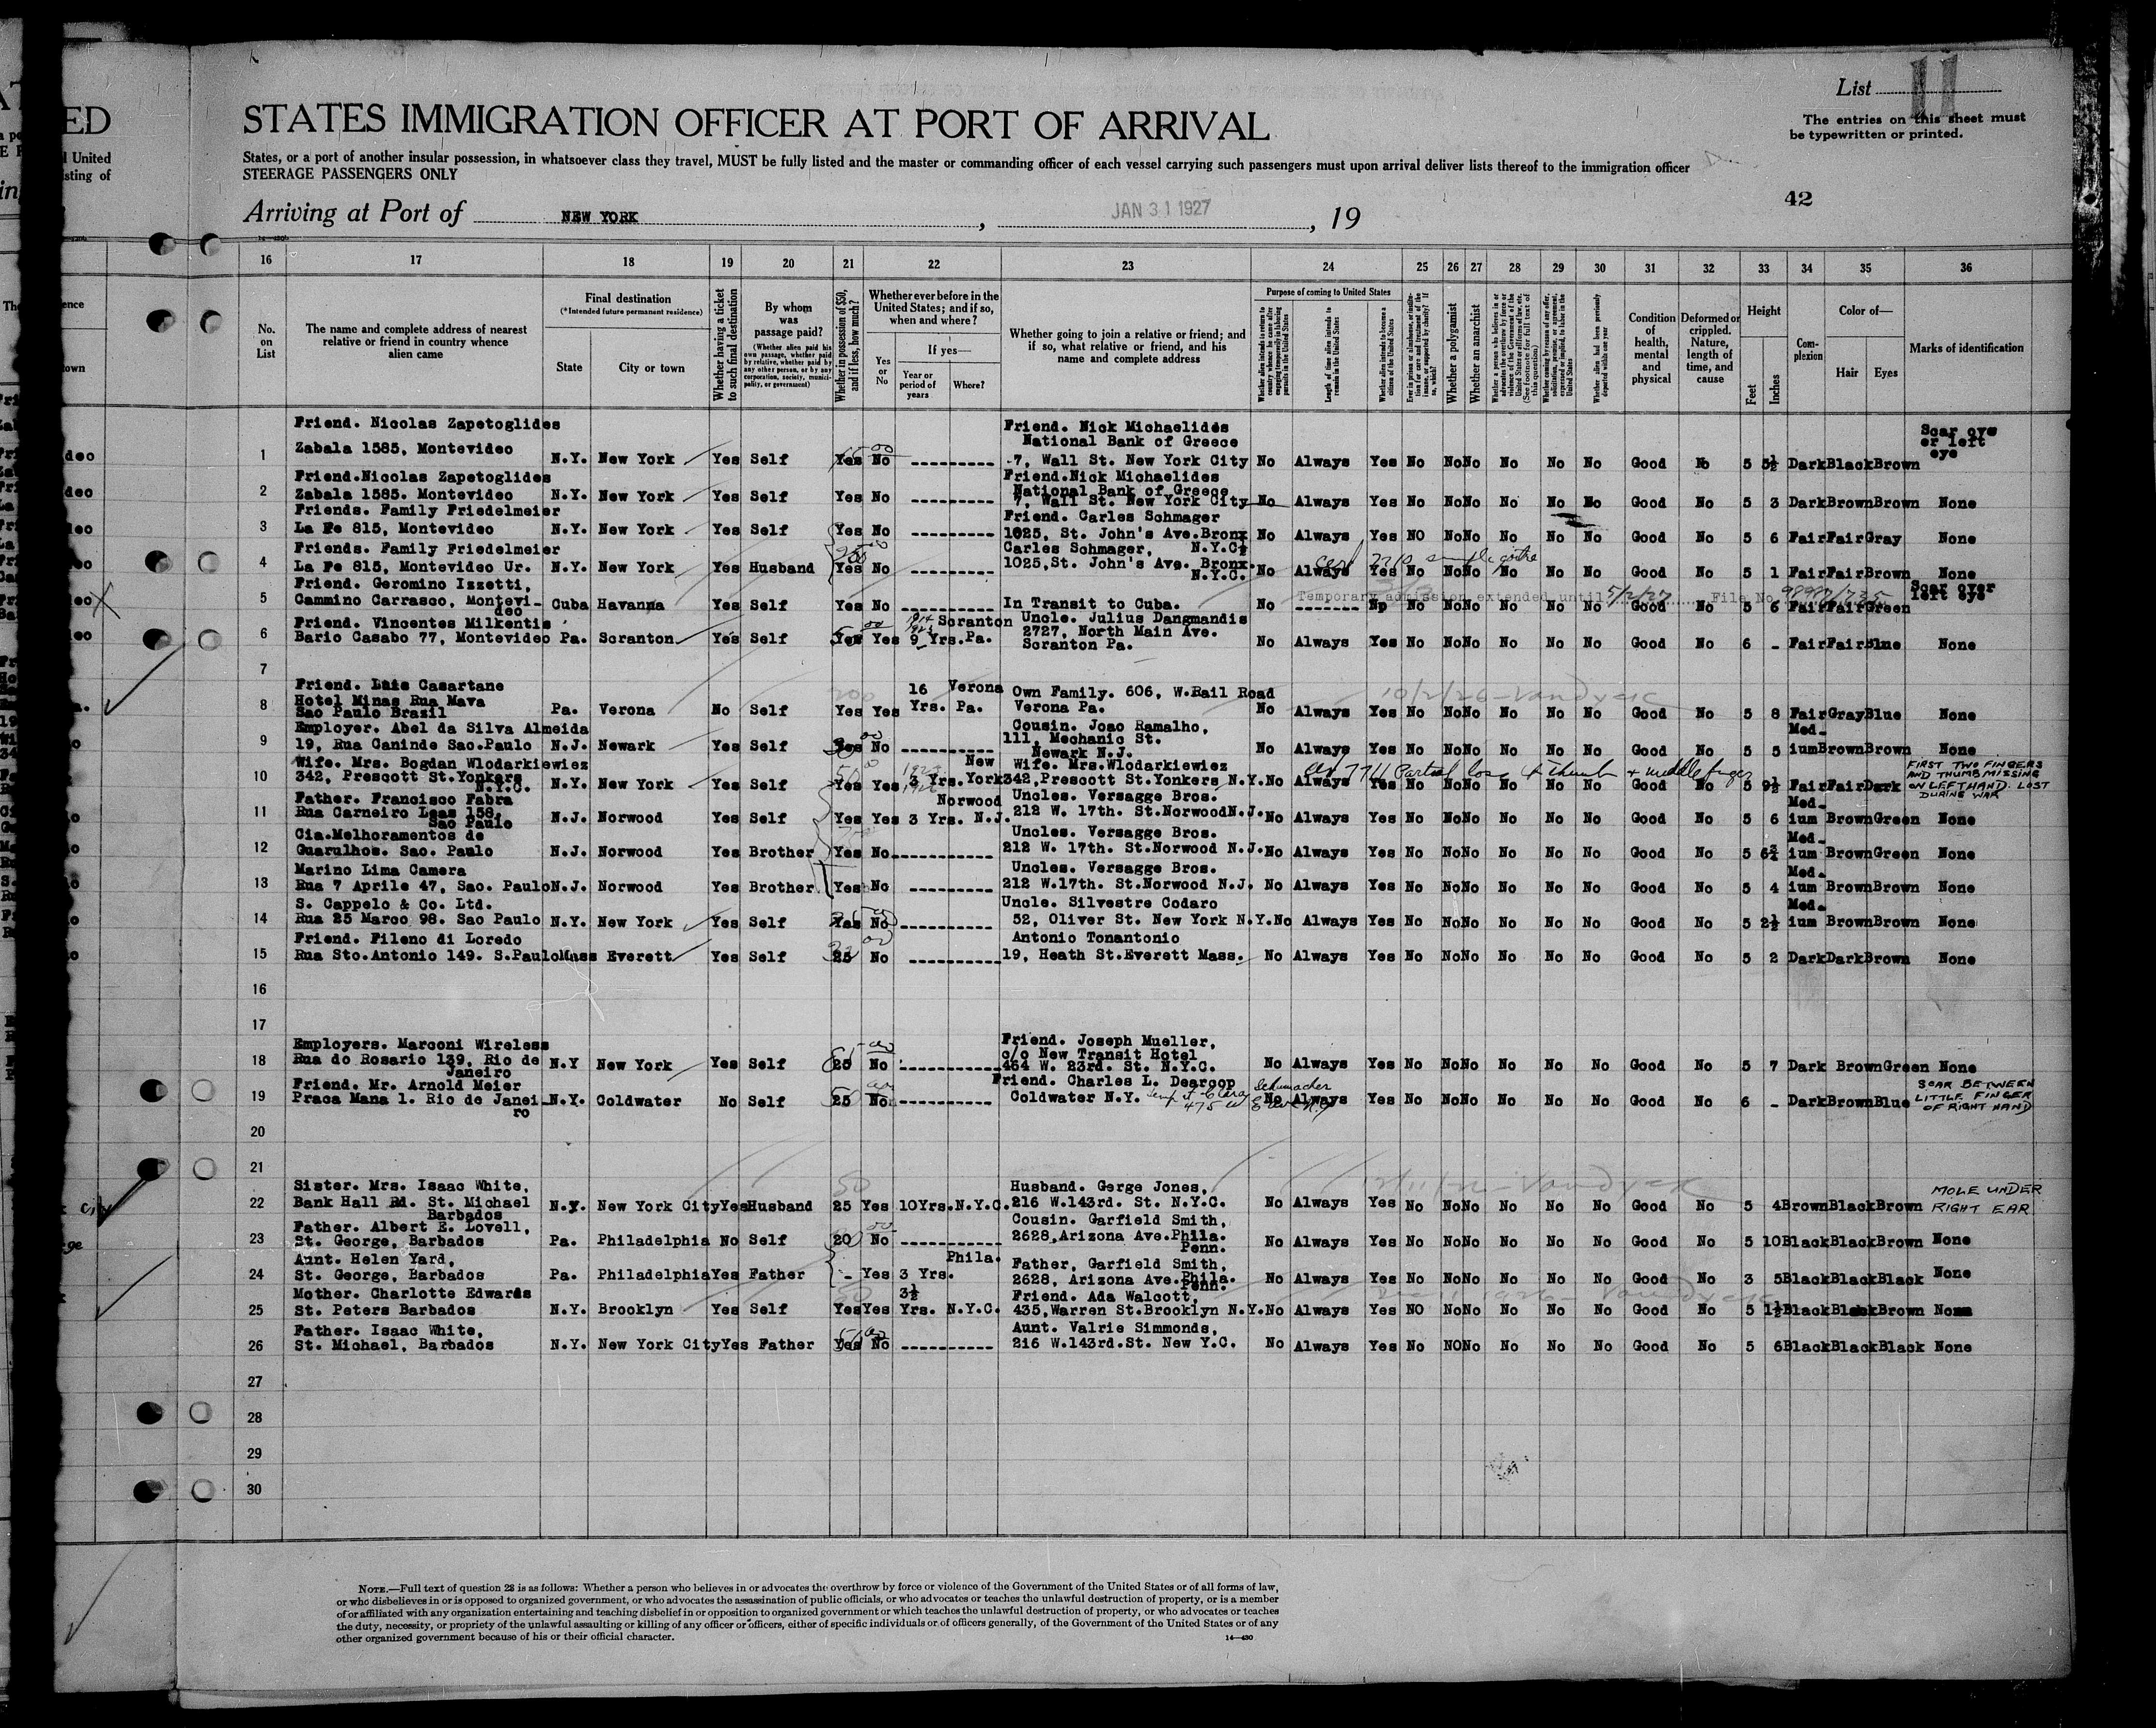 ED
List 11
The entries on this sheet must
be typewritten or printed.
STATES IMMIGRATION OFFICER AT PORT OF ARRIVAL
l United
sting of
States, or a port of another insular possession, in whatsoever class they travel, MUST be fully listed and the master or commanding officer of each vessel carrying such passengers must upon arrival deliver lists thereof to the immigration officer
STEERAGE PASSENGERS ONLY
42
Arriving at Port of NEW YORK, JAN 31 1927, 19
16 17 18 19 20 21 22 23 24 25 26 27 28 29 30 31 32 33 34 35 36
No. on List
The name and complete address of nearest relative or friend in country whence alien came
Final destination
(*Intended future permanent residence)
State
City or town
Whether having a ticket to such final destination
By whom was passage paid?
(Whether alien paid his own passage, whether paid by relative, whether paid by any other person, or by any corporation, society, municipality, or government)
Whether in possession of $50, and if less, how much?
Whether ever before in the United States; and if so, when and where?
Yes or No
If yes—
Year or period of years
Where?
Whether going to join a relative or friend; and if so, what relative or friend, and his name and complete address
Purpose of coming to United States
Length of time alien intends to remain in the United States
Whether alien intends to become a citizen of the United States
Whether a polygamist
Whether an anarchist
Condition of health, mental and physical
Deformed or crippled. Nature, length of time, and cause
Height
Feet
Inches
Complexion
Color of—
Hair
Eyes
Marks of identification
Friend. Nicolas Zapetoglides Friend. Nick Michaelides Scar ove
Zabala 1585, Montevideo National Bank of Greece er left
1 N.Y. New York Yes Self Yes No ---------- 7, Wall St. New York City No Always Yes No No No No No No Good No 5 5½ Dark Black Brown eye
Friend.Nicolas Zapetoglides Friend.Nick Michaelides
National Bank of Greece
2 Zabala 1585. Montevideo N.Y. New York Yes Self Yes No ---------- 7, Wall St. New York City No Always Yes No No No No No No Good No 5 3 Dark Brown Brown None
Friends. Family Friedelmeier Friend. Carles Schmager
3 La Fe 815, Montevideo N.Y. New York Yes Self Yes No ---------- 1025, St. John's Ave.Bronx N.Y.C. No Always Yes NO No No No No No Good No 5 6 Fair Fair Gray None
Friends. Family Friedelmeier Carles Schmager,
4 La Fe 815, Montevideo Ur. N.Y. New York Yes Husband Yes No ---------- 1025,St. John's Ave. Bronx. N.Y.C. No Always Yes No No No No No No Good No 5 1 Fair Fair Brown None
Friend. Geromino Izzetti, Scar over
5 Cammino Carrasco, Montevi-deo Cuba Havanna Yes Self Yes No ---------- In Transit to Cuba. No ------- No No No No No No No Good No 5 6 Fair Fair Green left eye
Temporary admission extended until 5/2/27 File No.
Friend. Vincentes Milkentis Scranton Uncle. Julius Dangmandis
6 Bario Casabo 77, Montevideo Pa. Scranton Yes Self Yes Yes 9 Yrs. Pa. 2727, North Main Ave. Scranton Pa. No Always Yes No No No No No No Good No 6 - Fair Fair Blue None
7
Friend. Luis Casartane 16 Verona Own Family. 606, W.Rail Road 10/2/26-Vandyck
8 Hotel Minas Rua Mava Sao Paulo Brazil Pa. Verona No Self Yes Yes Yrs. Pa. Verona Pa. No Always Yes No No No No No No Good No 5 8 Fair Gray Blue None
Employer. Abel da Silva Almeida Cousin. Joao Ramalho, Med-
9 19, Rua Caninde Sao.Paulo N.J. Newark Yes Self Yes No ---------- 111, Mechanic St. Newark N.J. No Always Yes No No No No No No Good No 5 5 ium Brown Brown None
Wife. Mrs. Bogdan Wlodarkiewiez New Wife. Mrs.Wlodarkiewiez
10 342, Prescott St.Yonkers N.Y.C. N.Y. New York Yes Self Yes Yes 3 Yrs. York 342,Prescott St.Yonkers N.Y. No Always Yes No No No No No No Good No 5 9½ Fair Fair Dark FIRST TWO FINGERS AND THUMB MISSING ON LEFT HAND. LOST DURING WAR
Partial loss of thumb + middle finger
Father. Francisco Fabra Norwood Uncles. Versagge Bros. Med-
11 Rua Carneiro Leas 158, Sao Paulo N.J. Norwood Yes Self Yes Yes 3 Yrs. N.J. 212 W. 17th. St.Norwood N.J. No Always Yes No No No No No No Good No 5 6 ium Brown Green None
Cia.Melhoramentos de Uncles. Versagge Bros. Med-
12 Guarulhos. Sao. Paulo N.J. Norwood Yes Brother Yes No ---------- 212 W. 17th. St.Norwood N.J. No Always Yes No No No No No No Good No 5 6¾ ium Brown Green None
Marino Lima Camera Uncles. Versagge Bros. Med-
13 Rua 7 Aprile 47, Sao. Paulo N.J. Norwood Yes Brother Yes No ---------- 212 W.17th. St.Norwood N.J. No Always Yes No No No No No No Good No 5 4 ium Brown Brown None
S. Cappelo & Co. Ltd. Uncle. Silvestre Codaro Med-
14 Rua 25 Marco 98. Sao Paulo N.Y. New York Yes Self Yes No ---------- 52, Oliver St. New York N.Y. No Always Yes No No No No No No Good No 5 2½ ium Brown Brown None
Friend. Fileno di Loredo Antonio Tonantonio
15 Rua Sto.Antonio 149. S.Paulo Mass Everett Yes Self 25 No ---------- 19, Heath St.Everett Mass. No Always Yes No No No No No No Good No 5 2 Dark Dark Brown None
16
17
Employers. Marconi Wireless Friend. Joseph Mueller,
c/o New Transit Hotel
18 Rua do Rosario 139, Rio de Janeiro N.Y New York Yes Self 25 No ---------- 464 W. 23rd. St. N.Y.C. No Always Yes No No No No No No Good No 5 7 Dark Brown Green None
Friend. Mr. Arnold Meier Friend. Charles L. Dearcop Schumacher
19 Praca Mana 1. Rio de Janeiro N.Y. Coldwater No Self 25 No ---------- Coldwater N.Y. No Always Yes No No No No No No Good No 6 - Dark Brown Blue SCAR BETWEEN LITTLE FINGER OF RIGHT HAND
20
21
Sister. Mrs. Isaac White, Husband. Gerge Jones,
22 Bank Hall Rd. St. Michael Barbados N.Y. New York City Yes Husband 25 Yes 10Yrs. N.Y.C. 216 W.143rd. St. N.Y.C. No Always Yes No No No No No No Good No 5 4 Brown Black Brown MOLE UNDER RIGHT EAR
Father. Albert E. Lovell, Cousin. Garfield Smith,
23 St. George, Barbados Pa. Philadelphia No Self 20 No ---------- 2628,Arizona Ave.Phila. Penn. No Always Yes No No No No No No Good No 5 10 Black Black Brown None
Aunt. Helen Yard, Phila. Father, Garfield Smith,
24 St. George, Barbados Pa. Philadelphia Yes Father - Yes 3 Yrs. 2628, Arizona Ave.Phila. Penn. No Always Yes No No No No No No Good No 3 5 Black Black Black None
Mother. Charlotte Edwards 3½ Friend. Ada Walcott,
25 St. Peters Barbados N.Y. Brooklyn Yes Self Yes Yes Yrs. N.Y.C. 435,Warren St.Brooklyn N.Y. No Always Yes NO No No No No No Good No 5 1½ Black Black Brown None
Father. Isaac White, Aunt. Valrie Simmonds,
26 St. Michael, Barbados N.Y. New York City Yes Father Yes No ---------- 216 W.143rd.St. New Y.C. No Always Yes No NO No No No No Good No 5 6 Black Black Black None
27
28
29
30
NOTE.—Full text of question 28 is as follows: Whether a person who believes in or advocates the overthrow by force or violence of the Government of the United States or of all forms of law,
or who disbelieves in or is opposed to organized government, or who advocates the assassination of public officials, or who advocates or teaches the unlawful destruction of property, or is a member
of or affiliated with any organization entertaining and teaching disbelief in or opposition to organized government or which teaches the unlawful destruction of property, or who advocates or teaches
the duty, necessity, or propriety of the unlawful assaulting or killing of any officer or officers, either of specific individuals or of officers generally, of the Government of the United States or of any
other organized government because of his or their official character.
14—430